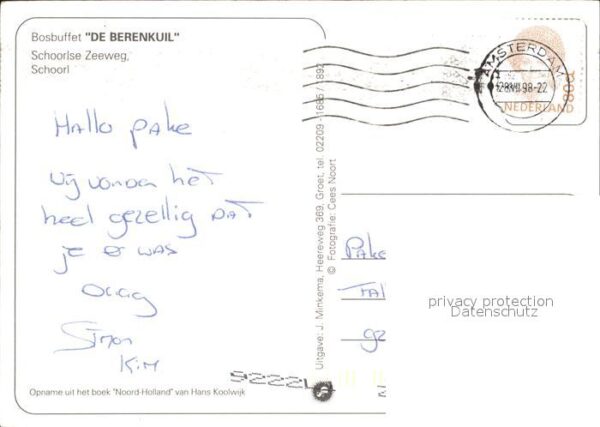 Bosbuffet "DE BERENKUIL"
Schoorlse Zeeweg,
Schoorl
AMSTERDAM
28 VII 98-22
NEDERLAND
80c
Hallo pake
wij vonden het
heel gezellig DAT
je er was
Simon
Kim
Uitgave: J. Minkema, Heereweg 369, Groet, tel. 02209 - 1685 / 1892
© Fotografie: Cees Noort
Pake
privacy protection
Datenschutz
Opname uit het boek "Noord-Holland" van Hans Koolwijk